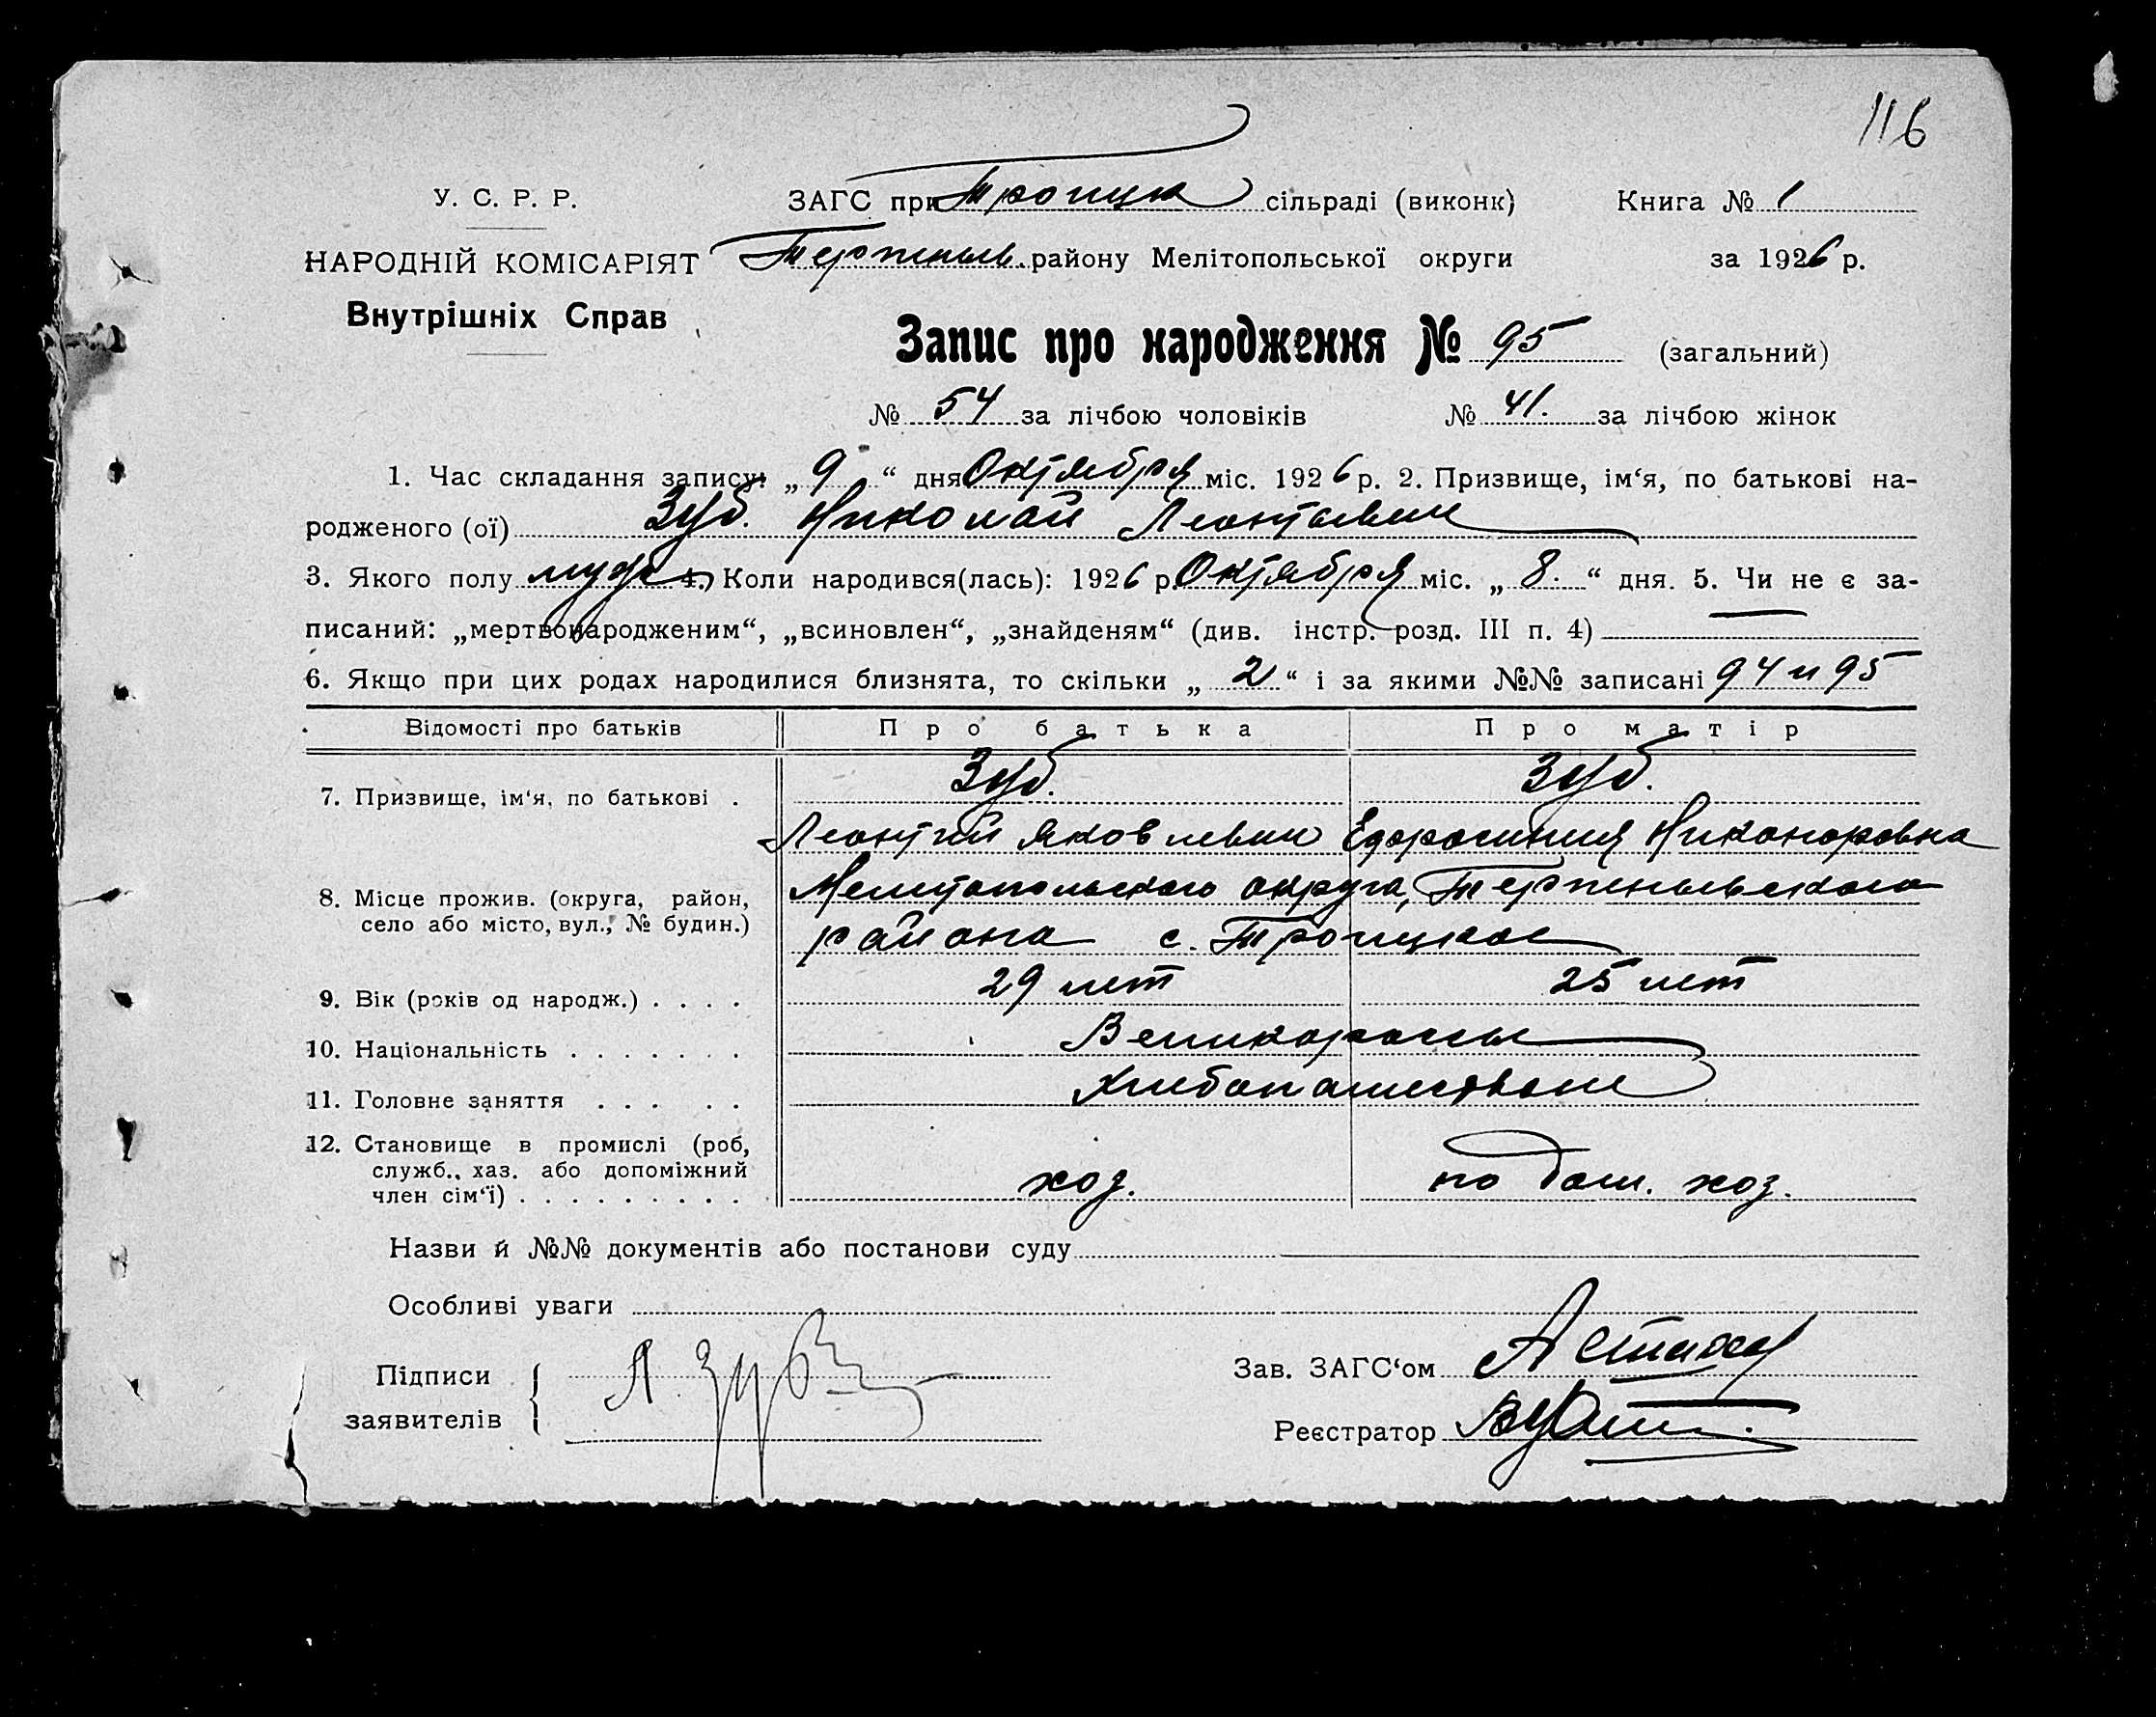 116
У. С. Р. Р.
ЗАГС при Троицк сільраді (виконк) Книга № 1
НАРОДНІЙ КОМІСАРІЯТ Терпеньев. району Мелітопольської округи за 1926 р.
Внутрішніх Справ
Запис про народження № 95 (загальний)
№ 54 за лічбою чоловіків № 41. за лічбою жінок
1. Час складання запису: „ 9 “ дня Октября міс. 1926 р. 2. Призвище, ім‘я, по батькові на-
родженого (ої) Зуб. Николай Леонтьевич
3. Якого полу муж 4. Коли народився(лась): 1926 р. Октября міс. „ 8. “ дня. 5. Чи не є за-
писаний: „мертвонародженим“, „всиновлен“, „знайденям“ (див. інстр. розд. III п. 4) —
6. Якщо при цих родах народилися близнята, то скільки „ 2 “ і за якими №№ записані 94 и 95
Відомості про батьків Про батька Про матір
7. Призвище, ім‘я, по батькові . Зуб. Зуб.
Леонтий Яковлевич Ефросиния Никаноровна
8. Місце прожив. (округа, район, Мелитопольского округа, Терпеньевского
село або місто, вул., № будин.) района с. Троицкое
9. Вік (років од народж.) . . . . 29 лет 25 лет
10. Національність . . . . . . . Великороссы
11. Головне заняття . . . . . Хлебопашество
12. Становище в промислі (роб,
служб., хаз. або допоміжний
член сім‘ї) . . . . . . . . . хоз. по дом. хоз.
Назви й №№ документів або постанови суду
Особливі уваги
Підписи Л. Зуб Зав. ЗАГС‘ом
заявителів Реєстратор